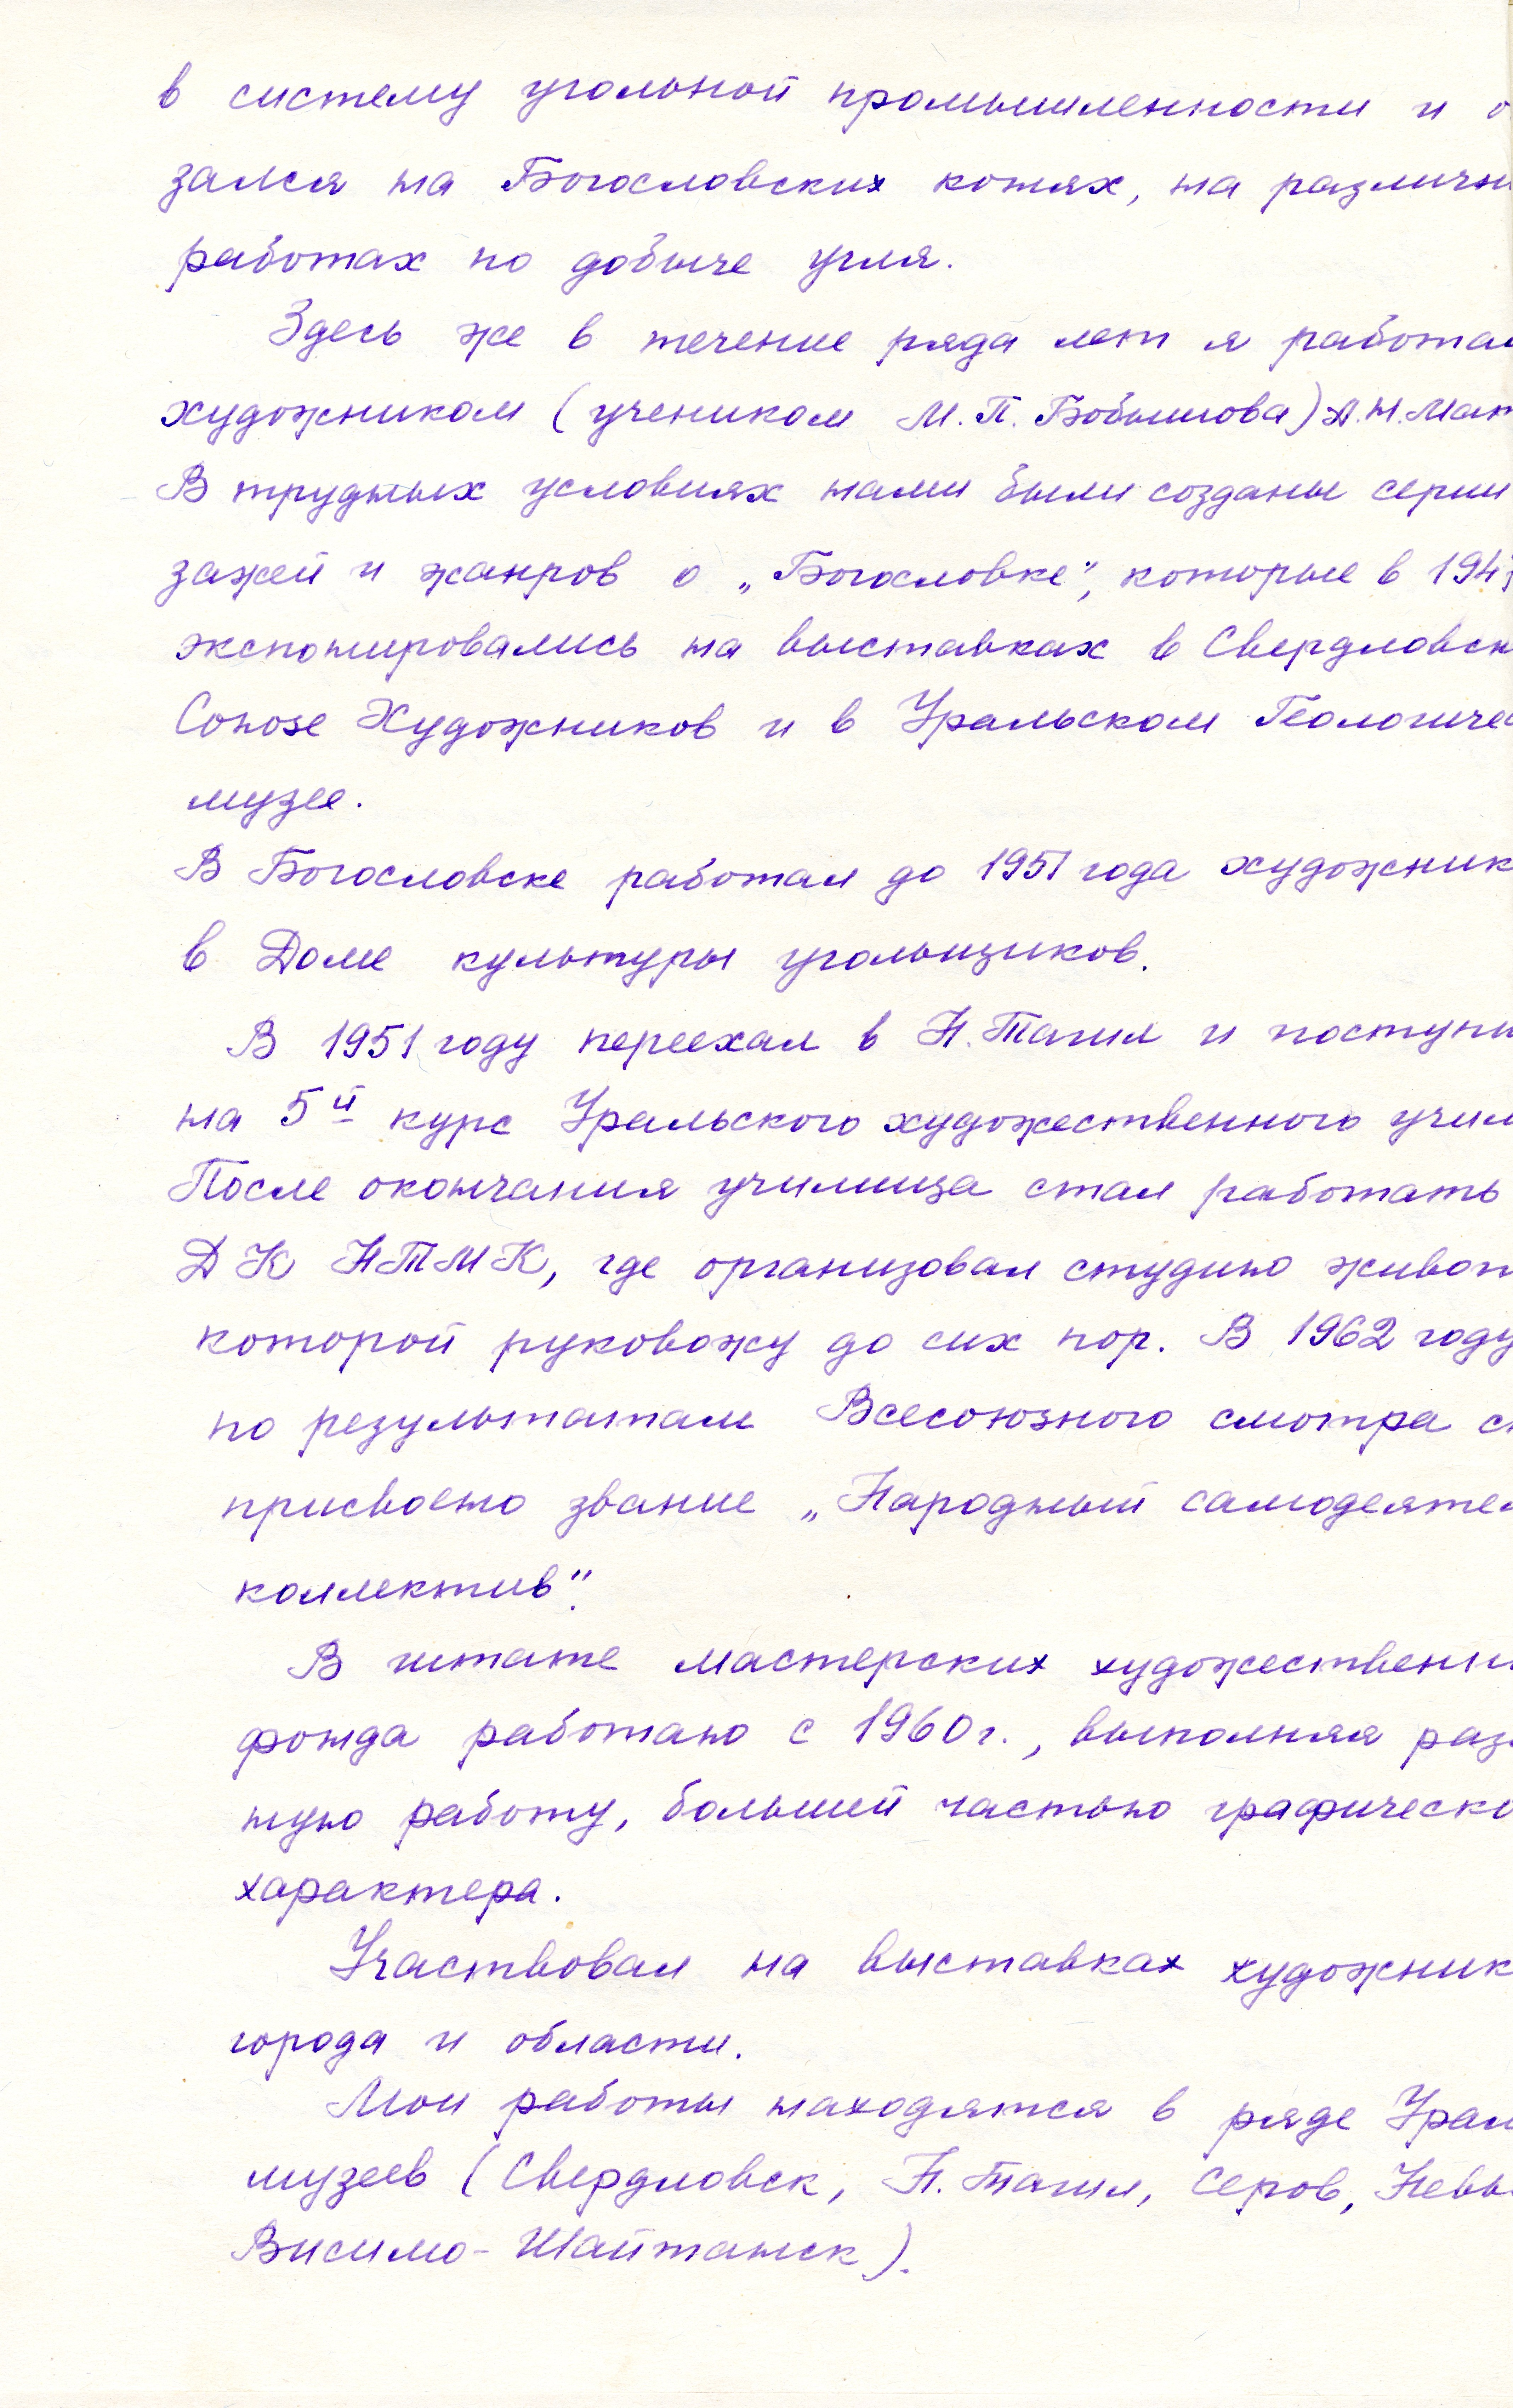 в систему угольной промышленности и о
зался на Богословских копях, на различн
работах по добыче угля.
Здесь же в течение ряда лет я работал
художником (учеником М. П. Бобышова) А. Н. Мат
В трудных условиях нами были созданы серии
зажей и жанров о „Богословке", которые в 194
экспонировались на выставках в Свердловск
Союзе Художников и в Уральском Геологичес
музее.
В Богословске работал до 1951 года художник
в Доме культуры угольщиков.
В 1951 году переехал в Н. Тагил и поступи
на 5й курс Уральского художественного учил
После окончания училища стал работать
ДК НТМК, где организовал студию живоп
которой руковожу до сих пор. В 1962 году
по результатам Всесоюзного смотра с
присвоено звание „Народный самодеятел
коллектив".
В штате мастерских художественн
фонда работаю с 1960 г., выполняя раз
ную работу, большей частью графическо
характера.
Участвовал на выставках художник
города и области.
Мои работы находятся в ряде Урал
музеев (Свердловск, Н. Тагил, Серов, Невь
Висимо-Шайтанск).